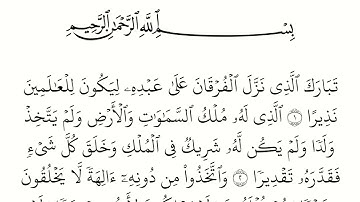 بِسْمِ اللَّهِ الرَّحْمَٰنِ الرَّحِيمِ
تَبَارَكَ الَّذِى نَزَّلَ الْفُرْقَانَ عَلَىٰ عَبْدِهِۦ لِيَكُونَ لِلْعَالَمِينَ
نَذِيرًا ١ الَّذِى لَهُۥ مُلْكُ السَّمَاوَاتِ وَالْأَرْضِ وَلَمْ يَتَّخِذْ
وَلَدًا وَلَمْ يَكُن لَّهُۥ شَرِيكٌ فِى الْمُلْكِ وَخَلَقَ كُلَّ شَىْءٍ
فَقَدَّرَهُۥ تَقْدِيرًا ٢ وَاتَّخَذُوا مِن دُونِهِۦٓ ءَالِهَةً لَّا يَخْلُقُونَ